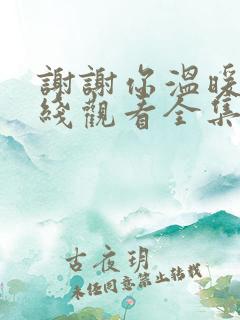 謝謝你溫暖
綫觀看全集
古夜玥
未経同意禁止转载